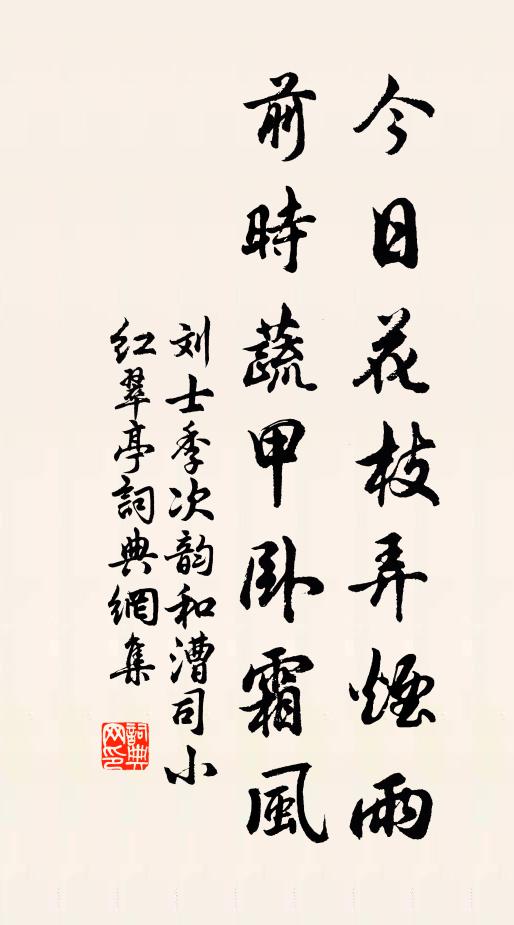 今日花枝弄煙雨
前時蔬甲卧霜風
刘士季次韵和漕司小
红翠亭詞典網集
詞典網印